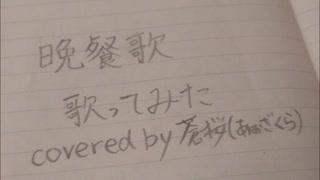 晩餐歌
歌ってみた
covered by 蒼桜(あおざくら)